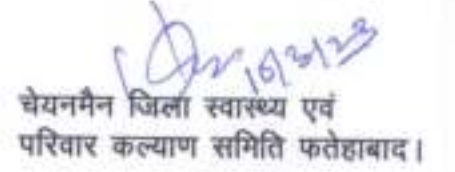 16/3/23
चेयनमैन जिला स्वास्थ्य एवं
परिवार कल्याण समिति फतेहाबाद।